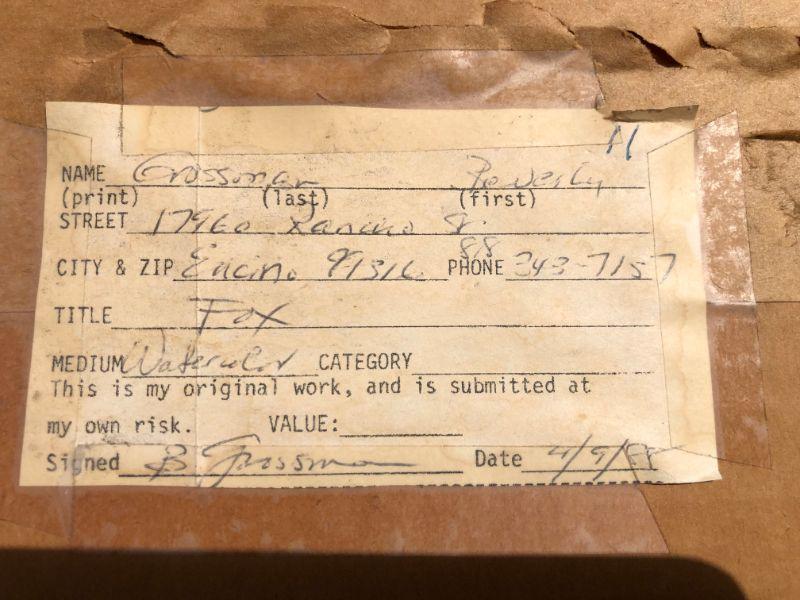 11
NAME Grossman Beverly
(print) (last) (first)
STREET 17960 Rancho St.
88
CITY & ZIP Encino 91316 PHONE 343-7157
TITLE Fox
MEDIUM Watercolor CATEGORY
This is my original work, and is submitted at
my own risk. VALUE:
Signed B Grossman Date 4/9/88